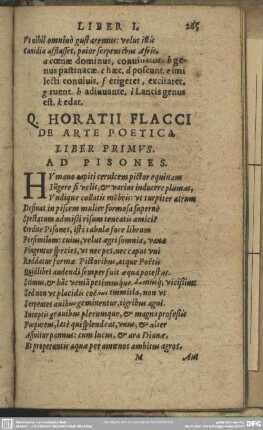 LIBER I. 265
Vt nihil omninò gustaremus: velut illis
Canidia afflasset, peior serpentibus Afris.
a cœnæ dominus, conuiuator. b ge-
nus pastinacæ. c hæc. d poscunt. e imi
lecti conuiuis. f erigeret, excitaret.
g ruent. h adiuuante. i Lancis genus
est. k edat.
Q. HORATII FLACCI
DE ARTE POETICA
LIBER PRIMVS.
AD PISONES.
HVmano capiti ceruicem pictor equinam
Iũgere si velit, & varias inducere plumas,
Vndique collatis mẽbris: vt turpiter atrum
Desinat in piscem mulier formosa supernè
Spectatum admissi risum teneatis amici?
Credite Pisones, isti tabulæ fore librum
Persimilem: cuius, velut ægri somnia, vanæ
Fingentur species, vt nec pes, nec caput vni
Reddatur formæ. Pictoribus, atque Poëtis
Quidlibet audendi semper fuit æqua potestas.
Scimus, & hãc veniã petimusque, damusq́; vicissim:
Sed non vt placidis coëant immitia, non vt
Serpentes auibus geminentur, tigribus agni.
Inceptis grauibus plerumque, & magna professis
Purpureus, latè qui splendeat, vnus, & alter
Assuitur pannus: cum lucus, & ara Dianæ,
Et properantis aquæ per amœnos ambitus agros,
M Aut